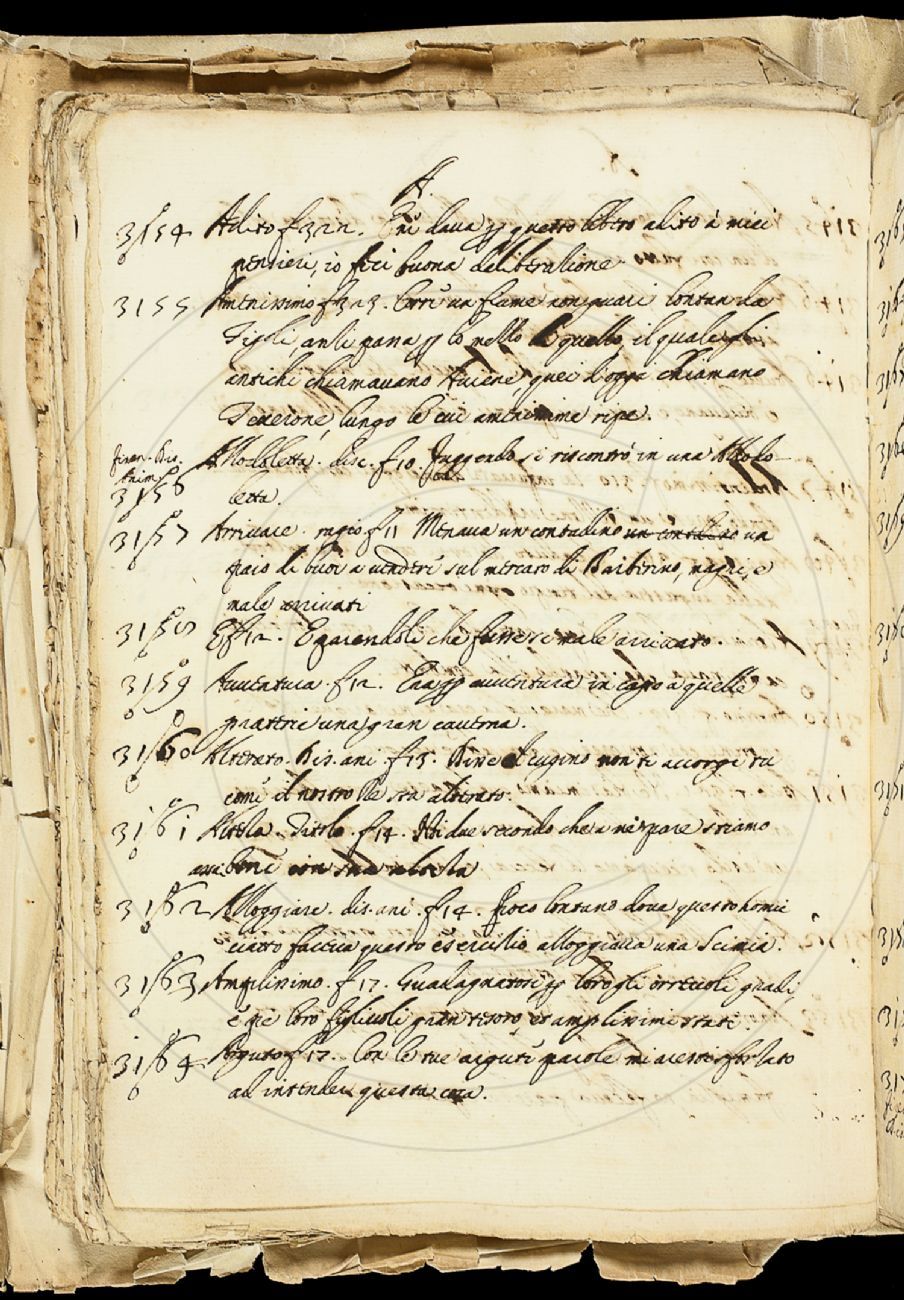 A.
3154 Adito f 322. E si dava p quarto libero adito à miei
pensieri, io feci buona deliberatione
3155 Amenissimo f 323. Corre un fiume non guari lontan da
Tigoli, anzi passa p lo mezzo di quello, il quale gli
antichi chiamavano Aniene, quei d'oggi chiamano
Teverone, lungo le cui amenissime ripe.
Firen. Dis.
Anim.
3156 Allodoletta. disc. f 10. Fuggendo si riscontrò in una Allodo
letta.
3157 Arrivare. ragio f 11 Menava un contadino un contadino un
paio di buoi a vendere sul mercato di Barberino, magri, e
male arrivati
3158 E f 12. E parendoli che fussero male arrivato.
3159 Avventura. f 12. Era p avventura in capo a quelle
praterie una gran caverna.
3160 Alterato. Dis. ani. f 13. Dime cugino non ti accorgi tu
come il nostro Re sta alterato.
3161 f 14. Noi due secondo che a me pare stiamo
bene con sua
3162 Alloggiare. dis. ani. f 14. Poco lontano dova questo homic
ciatto faceva questo esercitio alloggiava una Scimia.
3163 Amplissimo. f 17. Guadagnatosi p loro gli orrevoli gradi,
e pe loro figliuoli gran tesoro, et amplissimi stati.
3164 Arguto f 17. Con le tue argute parole mi avesti sforzato
ad intender questa cosa.